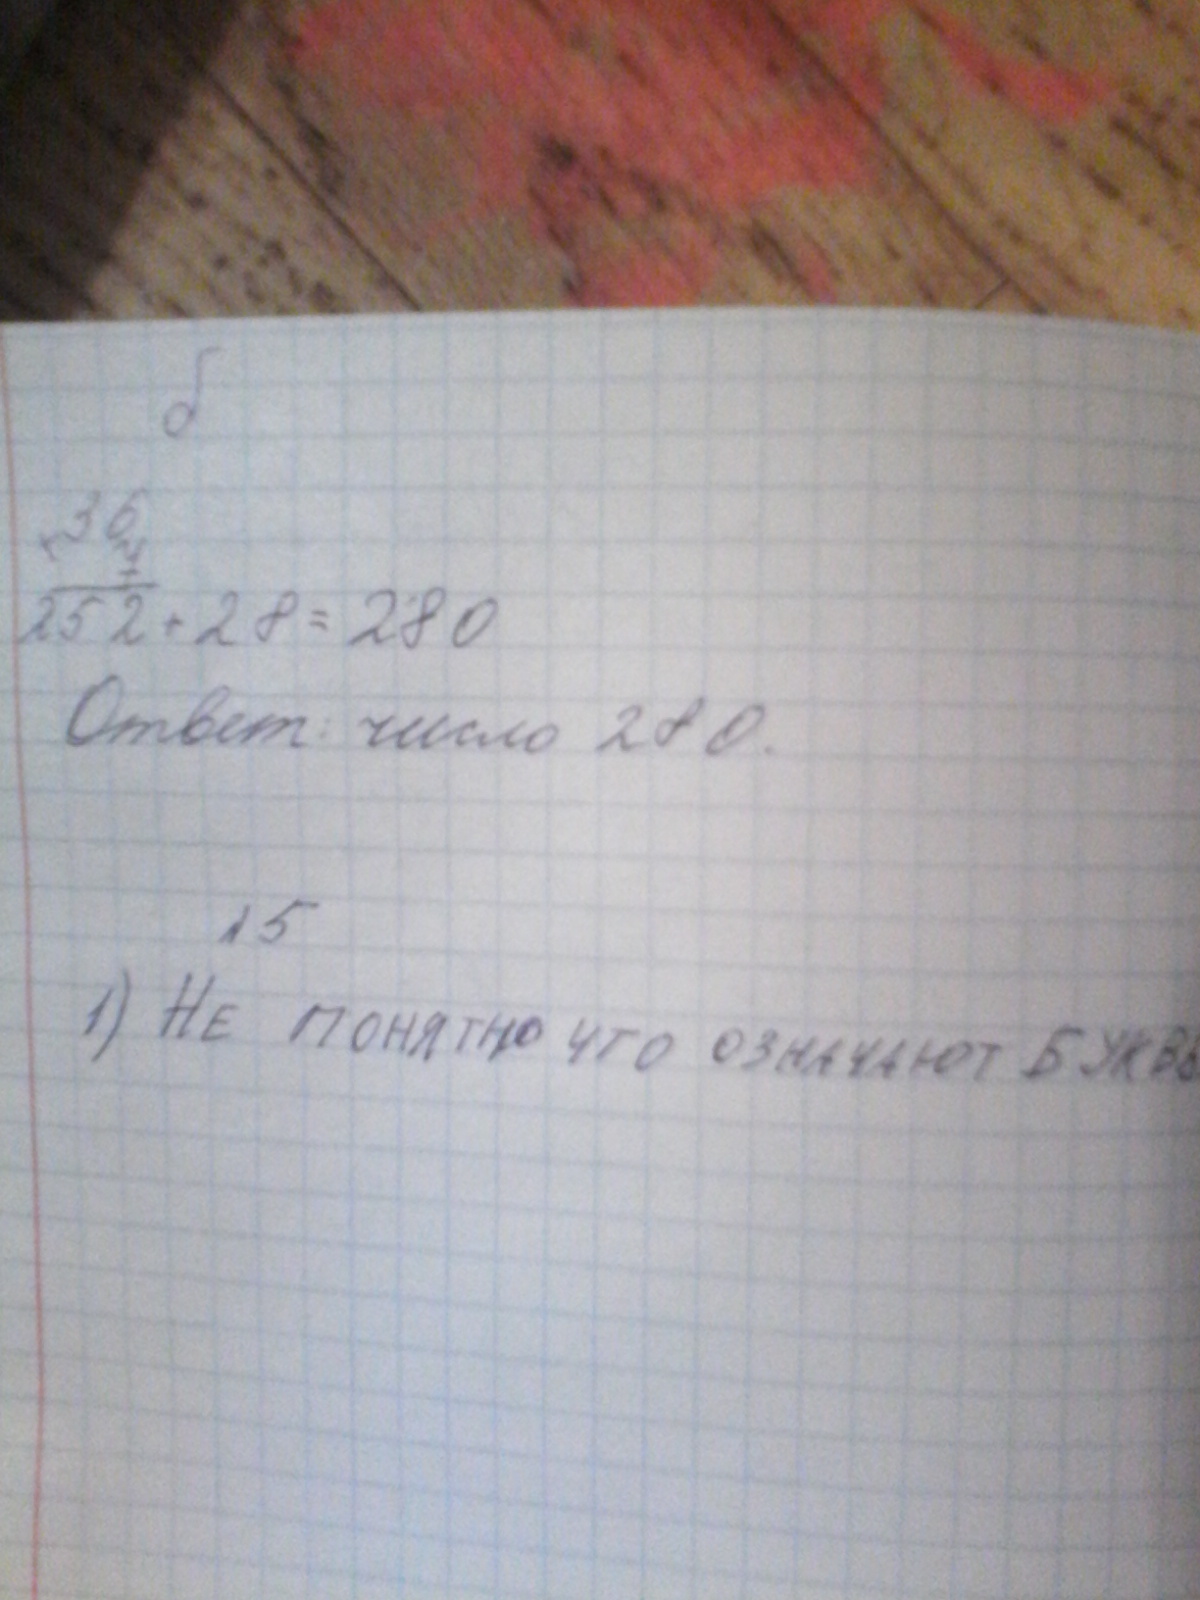 б
36
× 7
252 + 28 = 280
Ответ: число 280.
15
1) Не понятно что означают буквы